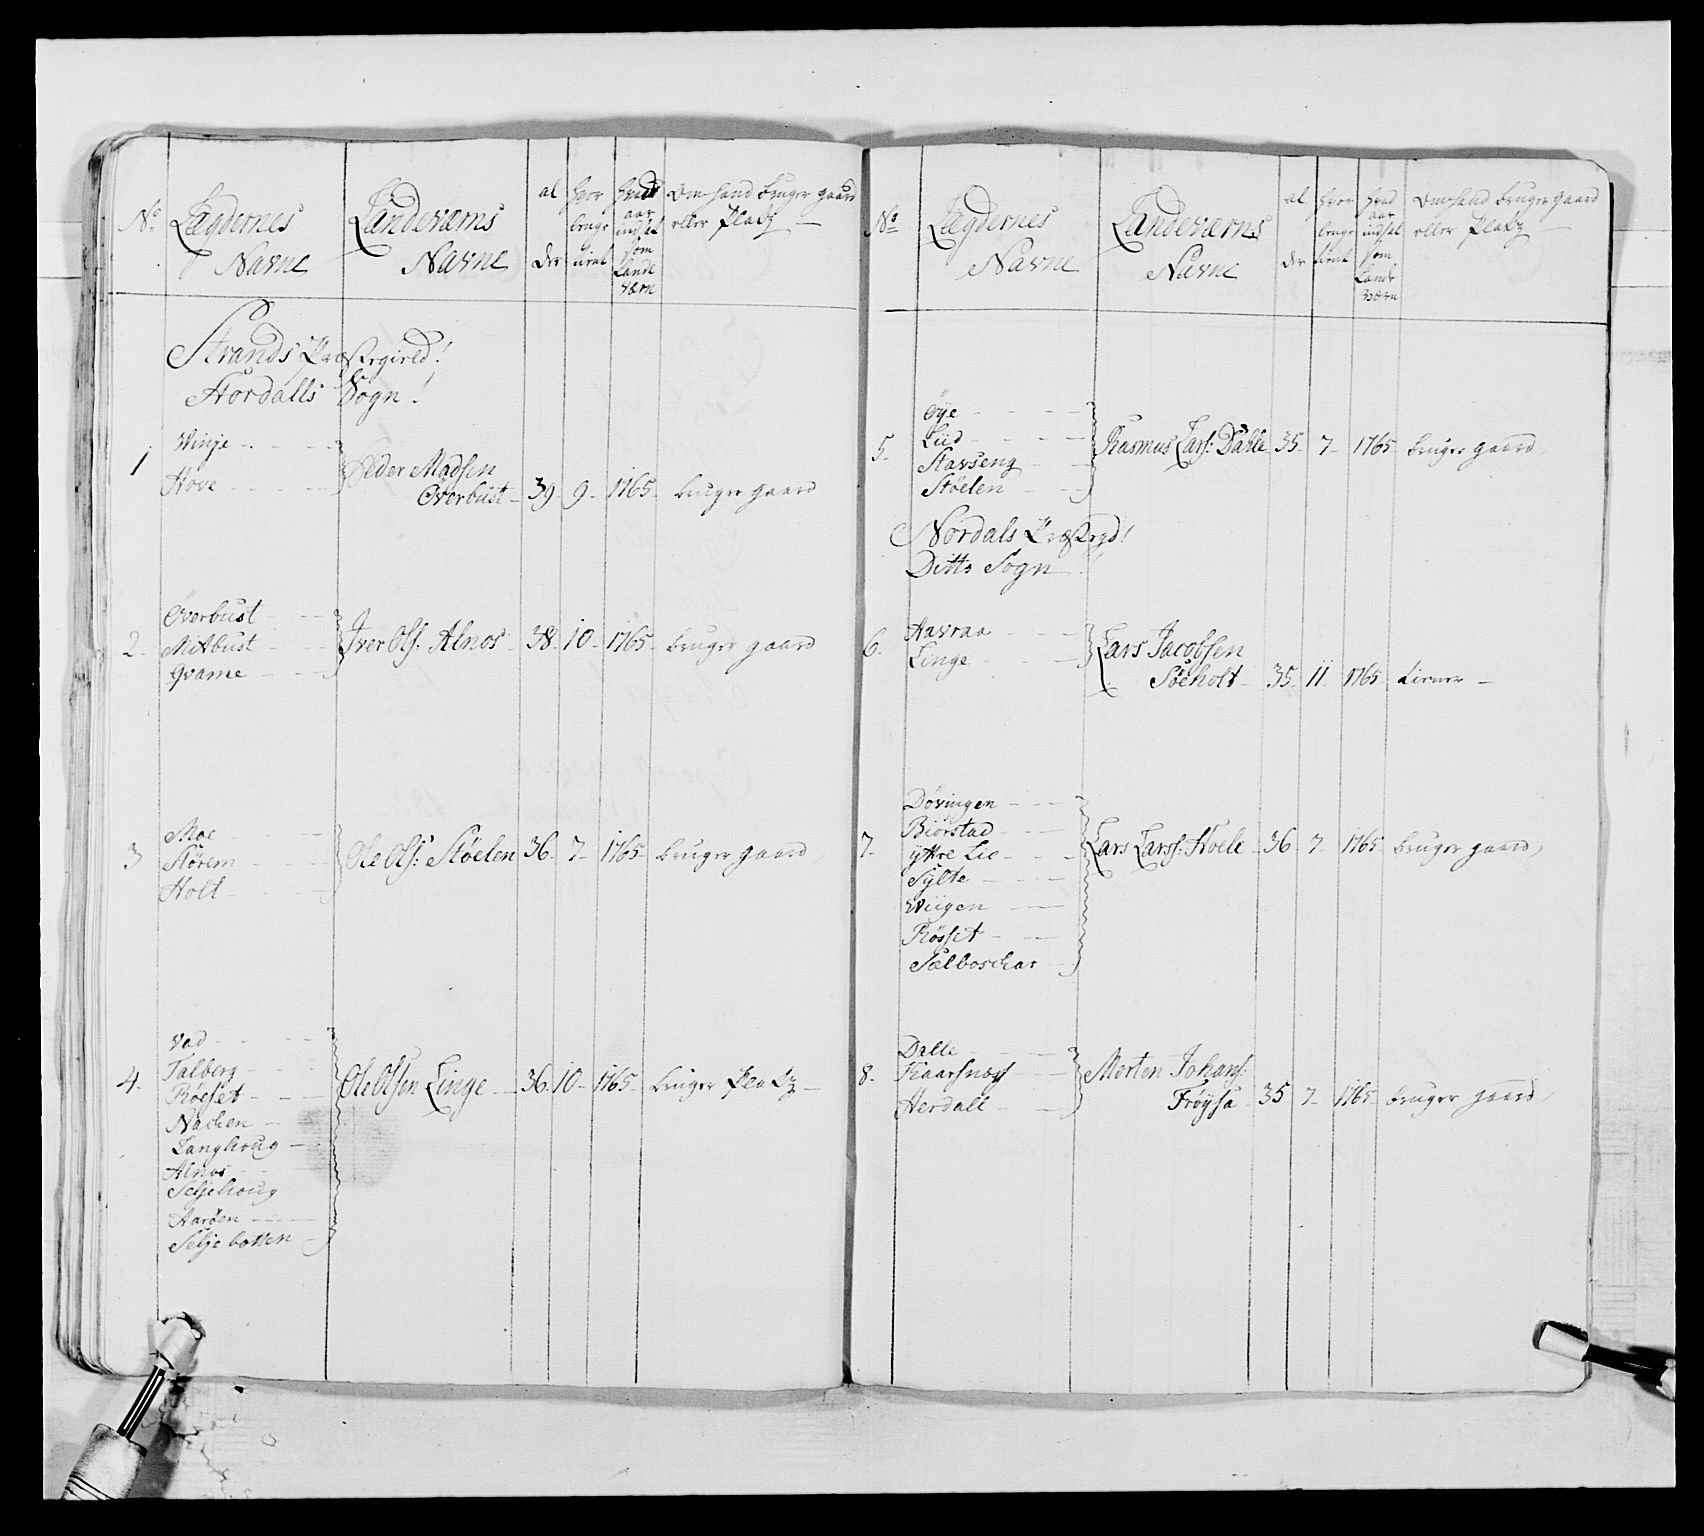 No
Lægdernes
Navne
Landeværns
Navne
al
der
hvor
lenge
tient
hvad
aar
indsat
som
Lande
værn
Om hand bruger gaard
eller Platz
Strands Præstegield!
Stordalls Sogn!
1
Winje
Hove
Peder Madsen
Overbust 39 9 1765 bruger gaard
2.
Overbust
Mitbust
Qvame
Iver Ols: Alnos 38 10 1765 bruger gaard
3
Moe
Störem
Holt
Ole Ols: Stöelen 36 7 1765 bruger gaard
4.
Vad
Talberg
Röeset
Nachen
Langhoug
Alnos
Seljehoug
Aaröen
Selje botten
Ole Olsen Linge 36 10 1765 bruger Platz
No
Lægdernes
Navne
Landeværns
Navne
al
der
hvor
lenge
tient
hvad
aar
indsat
som
Lande
værn
Om hand bruger gaard
eller Platz
5.
Öye
Liid
Stavseng
Stöelen
Rasmus Lars: Dahle 35 7 1765 bruger gaard
Nordals Præstegd!
Ditto Sogn!
6.
Havraa
Linge
Lars Jacobsen
Söeholt 35 11 1765 tiener
7.
Dövingen
Biörstad
ÿttre Lie
Sÿlte
Wiigen
Rösset
Sælboschar
Lars Larss: Hoele 36 7 1765 bruger gaard
8.
Dalle
Kaarsnæss
Herdall
Morten Johans:
Fröÿsa 35 7 1765 bruger gaard